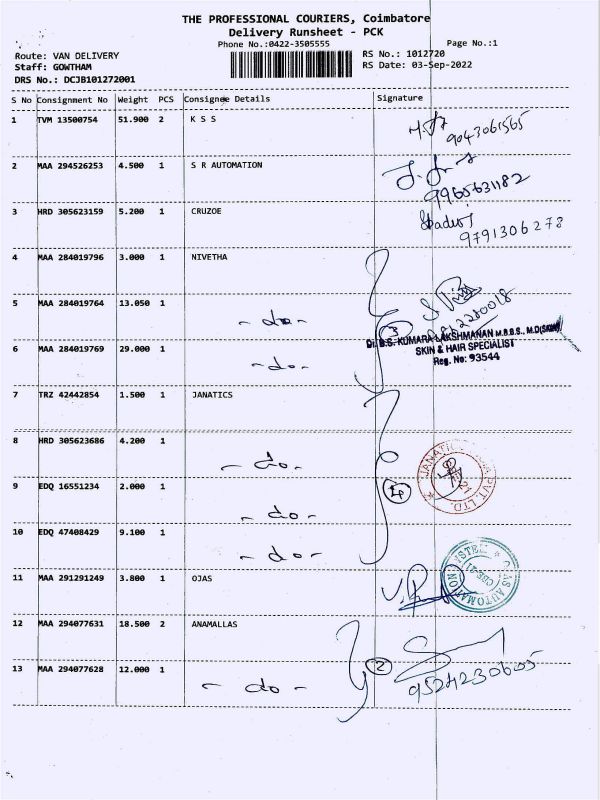 THE PROFESSIONAL COURIERS, Coimbatore
Delivery Runsheet - PCK
Phone No.:0422-3505555
Page No.:1
Route: VAN DELIVERY
RS No.: 1012720
Staff: GOWTHAM
RS Date: 03-Sep-2022
DRS No.: DCJB101272001
S No Consignment No Weight PCS Consignee Details Signature
1 TVM 13500754 51.900 2 K S S
9043061565
2 MAA 294526253 4.500 1 S R AUTOMATION
9965631182
3 HRD 305623159 5.200 1 CRUZOE
9791306278
4 MAA 284019796 3.000 1 NIVETHA
5 MAA 284019764 13.050 1 - do -
3
Dr. B.S. KUMARA LAKSHMANAN M.B.B.S., M.D(SKIN)
SKIN & HAIR SPECIALIST
Reg. No: 93544
6 MAA 284019769 29.000 1 - do -
7 TRZ 42442854 1.500 1 JANATICS
8 HRD 305623686 4.200 1 - do -
JANATICS PVT. LTD.
9 EDQ 16551234 2.000 1 - do -
4
10 EDQ 47408429 9.100 1 - do -
11 MAA 291291249 3.800 1 OJAS
OJAS AUTOMATION
12 MAA 294077631 18.500 2 ANAMALLAS
13 MAA 294077628 12.000 1 - do -
2
9524230605